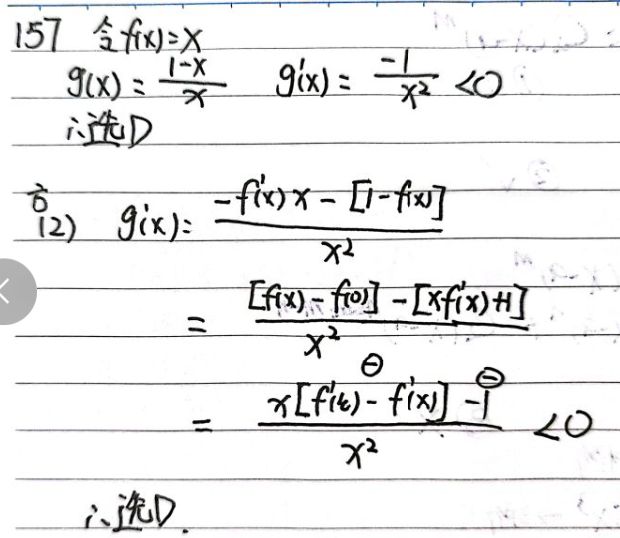 157 令f(x)=x
g(x)=\frac{1-x}{x} g'(x)=\frac{-1}{x^2}<0
∴选D
(2) g'(x)=\frac{-f'(x)x-[1-f(x)]}{x^2}
=\frac{[f(x)-f(0)]-[xf'(x)+1]}{x^2}
=\frac{x[f'(ξ)-f'(x)]-1}{x^2}<0
⊖ ⊖
∴选D.